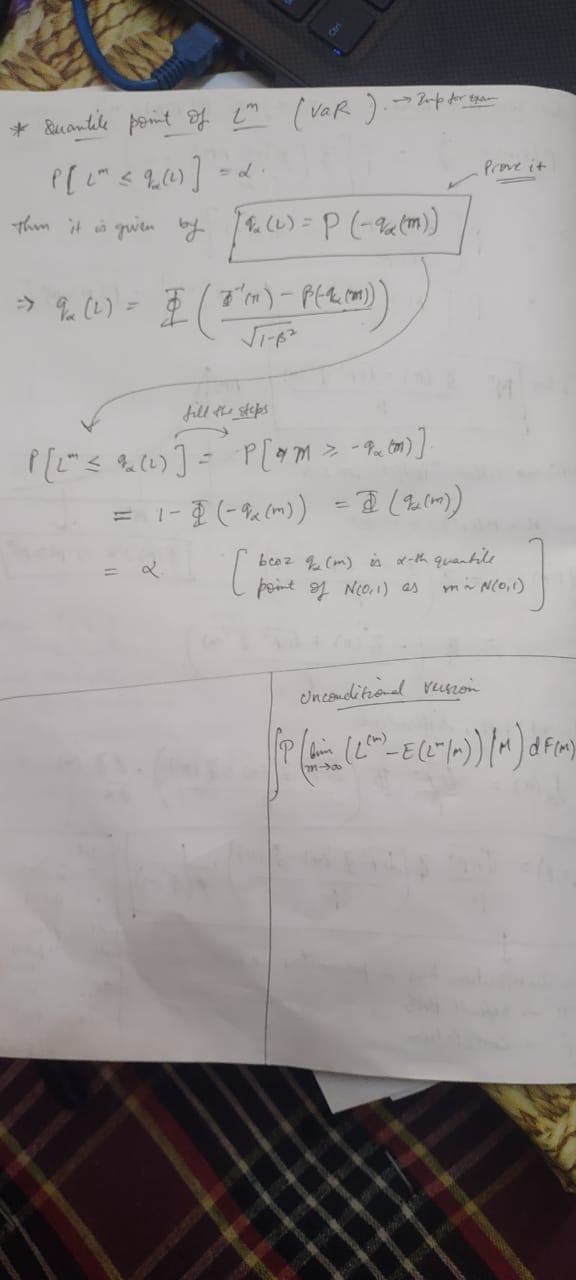 * Quantile point of L^m (VaR). → Imp for exam
P[L^m ≤ q_α(L)] = α.
Prove it
then it is given by q_α(L) = P(-q_α(m))
⇒ q_α(L) = Φ( (Φ^-1(π) - β(-q_α(m))) / √(1-β²) )
fill the steps
P[L^m ≤ q_α(L)] = P[M ≥ -q_α(m)].
= 1 - Φ(-q_α(m)) = Φ(q_α(m))
= α [bcoz q_α(m) is α-th quantile
point of N(0,1) as m ~ N(0,1)]
Unconditional version
∫P(lim_{m→∞} (L^(m) - E(L^m|M)) | M) dF(M)
Ctrl